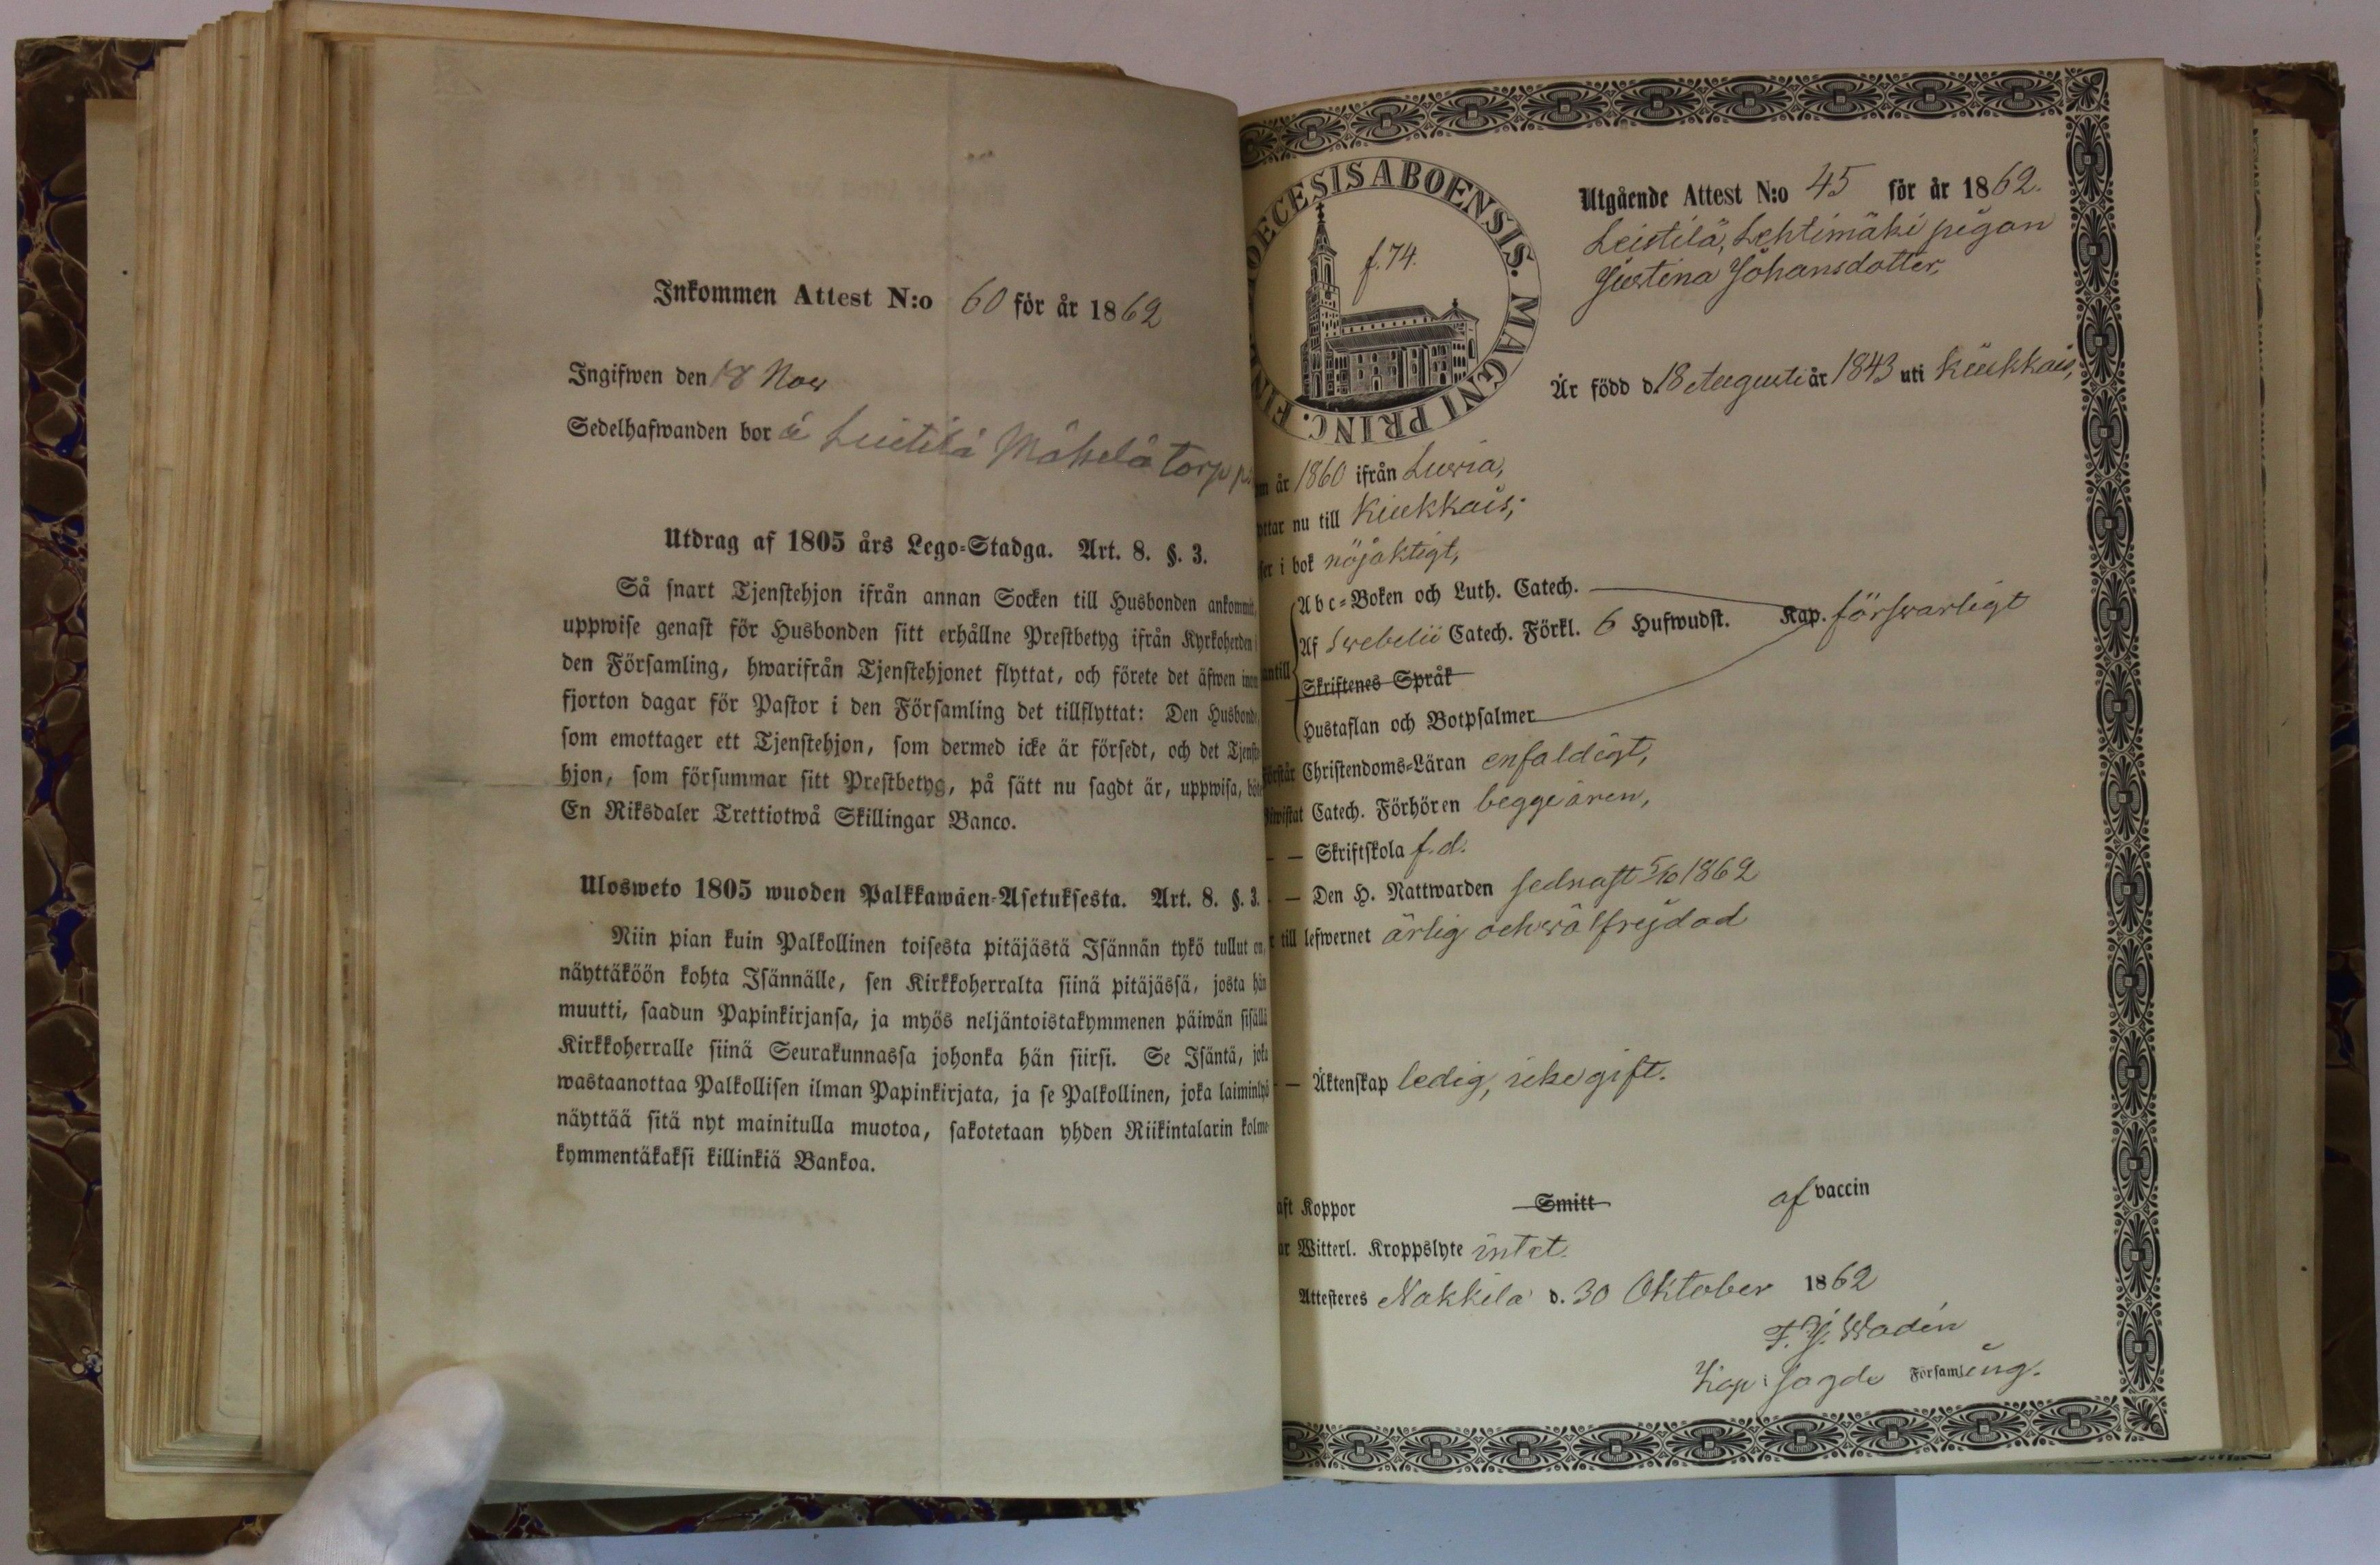 Inkommen Attest N:o 60 för år 1862
Ingifwen den 18 Nov
Sedelhafwanden bor å Leistilä Mäkelä torp
Utdrag af 1805 års Lego-Stadga. Art. 8. §. 3.
Så snart Tjenstehjon ifrån annan Socken till Husbonden ankommit,
uppwise genast för Husbonden sitt erhållne Prestbetyg ifrån Kyrkoherden i
den Församling, hwarifrån Tjenstehjonet flyttat, och förete det äfwen inom
fjorton dagar för Pastor i den Församling det tillflyttat: Den Husbonde,
som emottager ett Tjenstehjon, som dermed icke är försedt, och det Tjenste-
hjon, som försummar sitt Prestbetyg, på sätt nu sagdt är, uppwisa, böte
En Riksdaler Trettiotwå Skillingar Banco.
Ulosweto 1805 wuoden Palkkawäen-Asetuksesta. Art. 8. §. 3.
Niin pian kuin Palkollinen toisesta pitäjästä Isännän tykö tullut on,
näyttäköön kohta Isännälle, sen Kirkkoherralta siinä pitäjässä, josta hän
muutti, saadun Papinkirjansa, ja myös neljäntoistakymmenen päiwän sisällä
Kirkkoherralle siinä Seurakunnassa johonka hän siirsi. Se Isäntä, joka
wastaanottaa Palkollisen ilman Papinkirjata, ja se Palkollinen, joka laiminlyö
näyttää sitä nyt mainitulla muotoa, sakotetaan yhden Riikintalarin kolme-
kymmentäkaksi killinkiä Bankoa.
DECESIS ABOENSIS. MAGNI PRINC. FIN
f. 74.
Utgående Attest N:o 45 för år 1862.
Leistilä, Lehtimäki pigan
Justina Johansdotter,
Är född d. 18 Augusti år 1843 uti Kiukkais,
år 1860 ifrån Luvia,
ttar nu till Kiukkais;
ser i bok nöjaktigt,
Abc-Boken och Luth. Catech.
Af Swebelii Catech. Förkl. 6 Hufwudst. Kap. försvarligt
antill
Skriftenes Språk
Hustaflan och Botpsalmer
Förstår Christendoms-Läran enfaldigt,
Biwistat Catech. Förhören begge åren,
— — Skriftskola f. d.
— — Den H. Nattwarden sednast 5/10 1862
till lefwernet ärlig och välfrejdad
— — Äktenskap ledig, icke gift.
aft Koppor Smitt af vaccin
ar Witterl. Kroppslyte intet.
Attesteres Nakkila d. 30 Oktober 1862
F. J. Wadén
Kap. i sagde Församling.